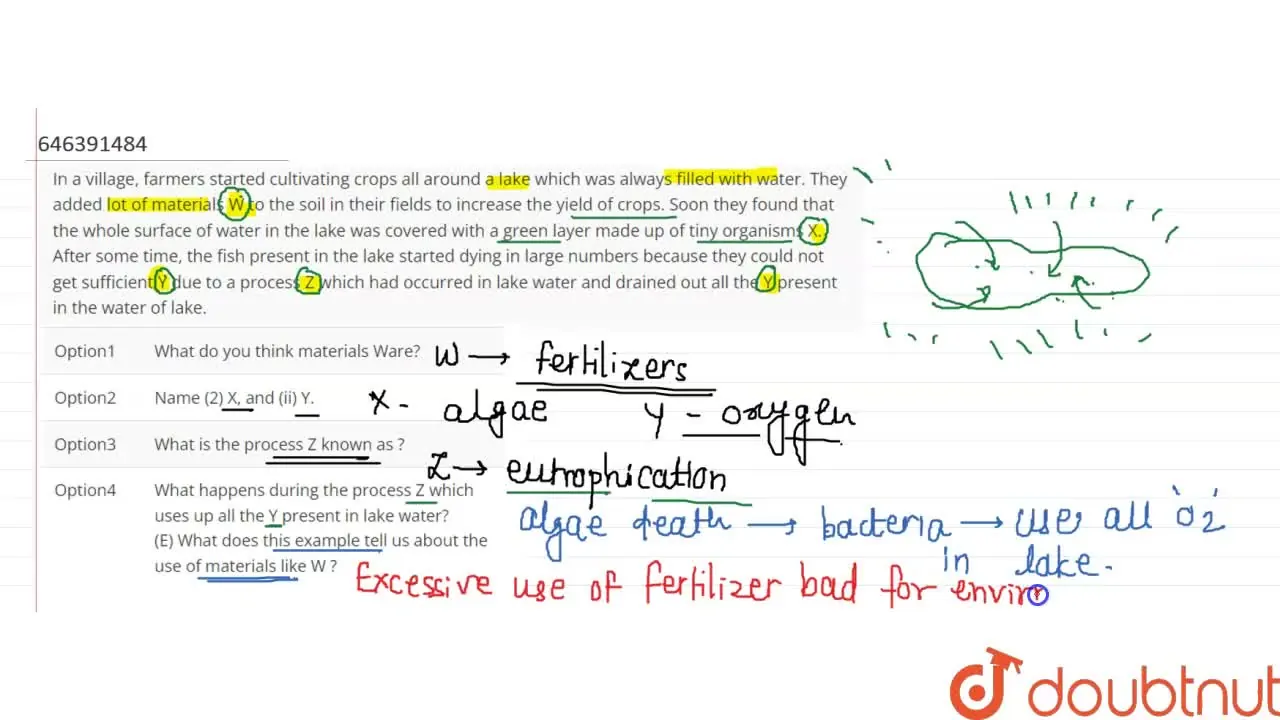 646391484
In a village, farmers started cultivating crops all around a lake which was always filled with water. They
added lot of materials W to the soil in their fields to increase the yield of crops. Soon they found that
the whole surface of water in the lake was covered with a green layer made up of tiny organisms X.
After some time, the fish present in the lake started dying in large numbers because they could not
get sufficient Y due to a process Z which had occurred in lake water and drained out all the Y present
in the water of lake.
Option1 What do you think materials Ware? W → fertilizers
Option2 Name (2) X, and (ii) Y. X - algae Y - oxygen
Option3 What is the process Z known as ? Z → eutrophication
Option4 What happens during the process Z which
uses up all the Y present in lake water? algae death → bacteria → use all 'O2'
(E) What does this example tell us about the
in lake.
use of materials like W ?
Excessive use of fertilizer bad for envir
doubtnut